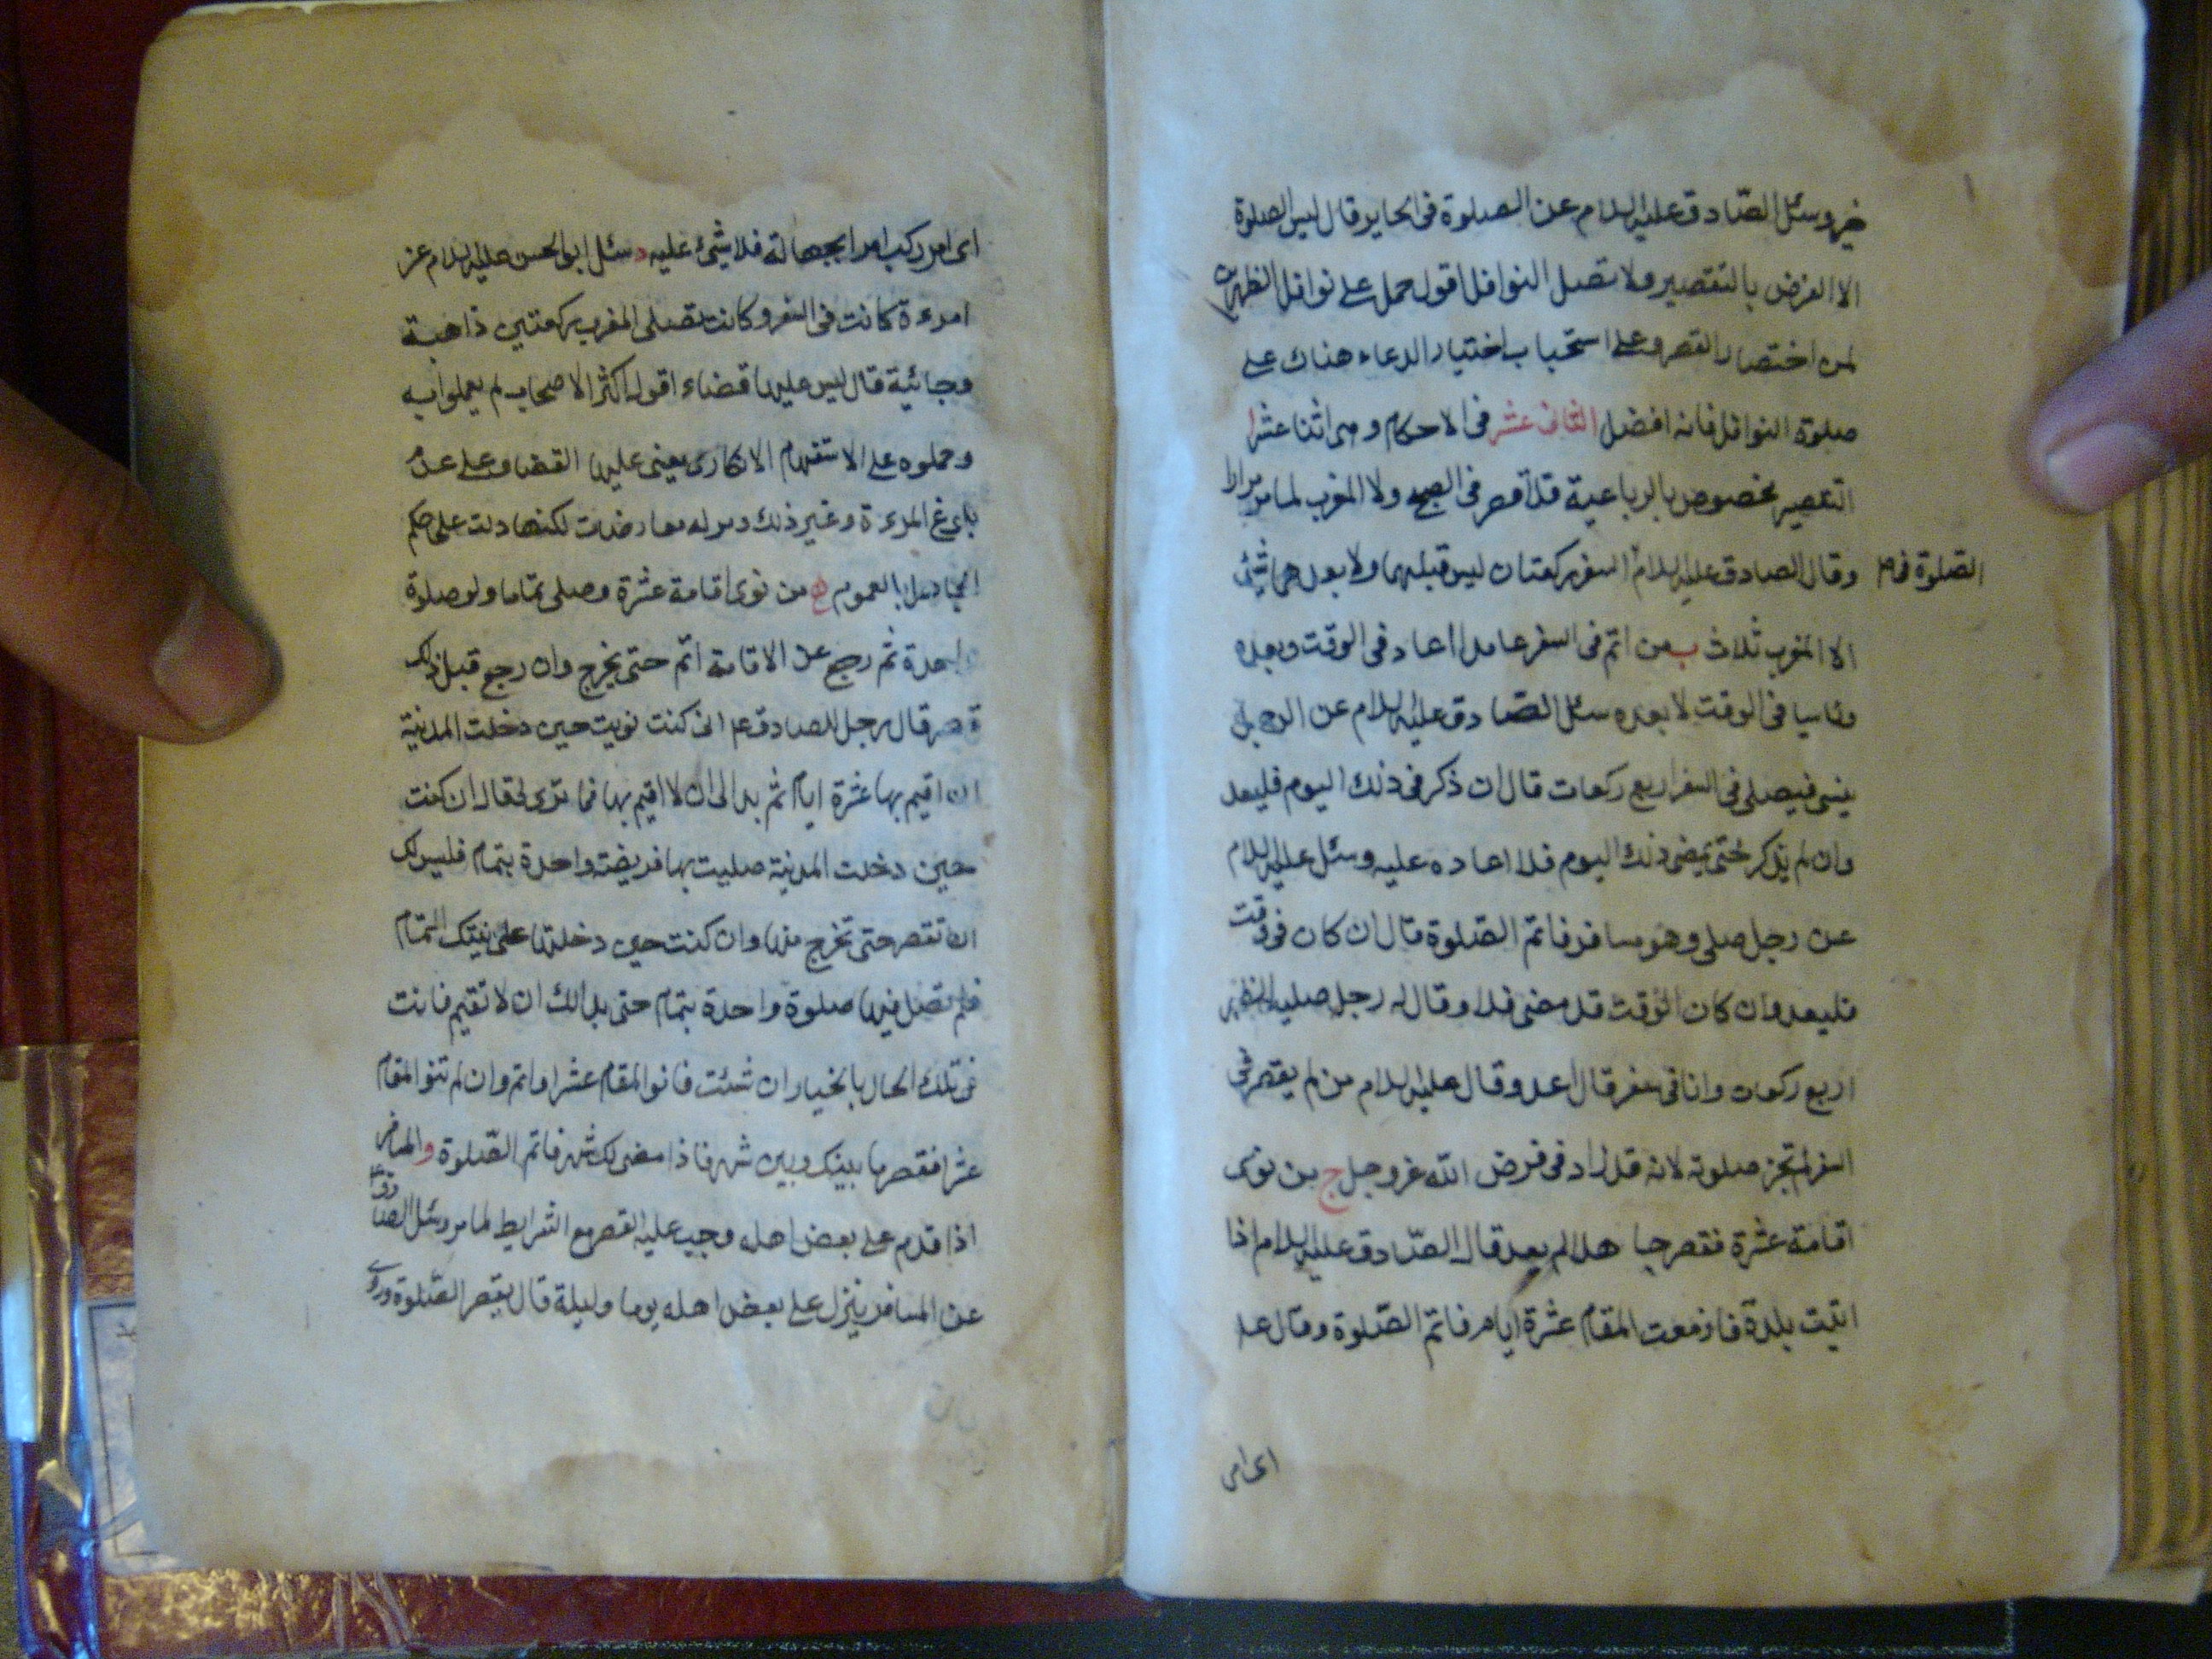 خير وسئل الصّادق عليه السلام عن الصلوة فى الحاير قال ليس الصلوة
الا الفرض بالتقصير ولا تصل النوافل اقول حمل على نوافل الظهرين
لمن اختصار القصر وعلى استحباب اختيار الدعاء هناك على
صلوة النوافل فانه افضل الثانى عشر فى الاحكام وهى اثنا عشر ا
التقصير مخصوص بالرباعية فلا قصر فى الصبح ولا المغرب لما مر مرارا
وقال الصادق عليه السلام السفر ركعتان ليس قبلهما ولا بعدهما شئ
الصلوة فى
الا المغرب ثلاث ب من اتم فى السفر عامدا اعاد فى الوقت وبعده
وناسيا فى الوقت لا بعده سئل الصّادق عليه السلام عن الرجل
ينسى فيصلى فى السفر اربع ركعات قال ان ذكر فى ذلك اليوم فليعد
وان لم يذكر حتى يمضى ذلك اليوم فلا اعاده عليه وسئل عليه السلام
عن رجل صلى وهو مسافر فاتم الصّلوة قال ان كان فى وقت
فليعد وان كان الوقت قد مضى فلا وقال له رجل صليت الظهر
اربع ركعات وانا فى سفر قال اعد وقال عليه السلام من لم يقصر فى
السفر لم تجز صلوته لانه قد زاد فى فرض الله عزوجل ج من نوى
اقامة عشرة فقصر جاهلا لم يعد قال الصّادق عليه السلام اذا
اتيت بلدة فازمعت المقام عشرة ايام فاتم الصّلوة وقال عه
اى امر
اى امر ركب امرا بجهالة فلا شئ عليه د سئل ابو الحسن عليه السلام عن
امرءة كانت فى السفر وكانت تصلى المغرب ركعتين ذاهبة
وجائية قال ليس عليها قضاء اقول اكثر الاصحاب لم يعملوا به
وحملوه على الاستفهام الانكارى يعنى عليها القضا وعلى عدم
بلوغ المرءة وغير ذلك وله معارضات لكنها دلت على حكم
الجاهل بالعموم ه من نوى اقامة عشرة وصلى تماما ولو صلوة
واحدة ثم رجع عن الاقامة اتم حتى يخرج وان رجع قبل ذلك
قصر قال رجل للصادق ع انى كنت نويت حين دخلت المدينة
ان اقيم بها عشرة ايام ثم بدا لى ان لا اقيم بها فما ترى لى قال ان كنت
حين دخلت المدينة صليت بها فريضة واحدة بتمام فليس لك
ان تقصر حتى تخرج منها وان كنت حين دخلتها على نيتك التمام
فلم تصل فيها صلوة واحدة بتمام حتى بدا لك ان لا تقيم فانت
فى تلك الحال بالخيار ان شئت فانو المقام عشرا واتم وان لم تنو المقام
عشرا فقصر ما بينك وبين شهر فاذا مضى لك شهر فاتم الصّلوة و المسافر
اذا قدم على بعض اهله وجب عليه القصر مع الشرايط لما مر وسئل الصادق ع
عن المسافر ينزل على بعض اهله يوما وليلة قال يقصر الصّلوة وروى